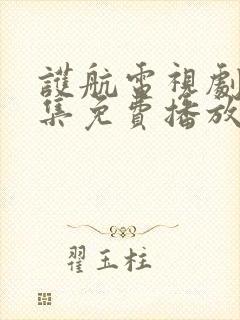 護航電視劇
集免費播放
翟玉柱